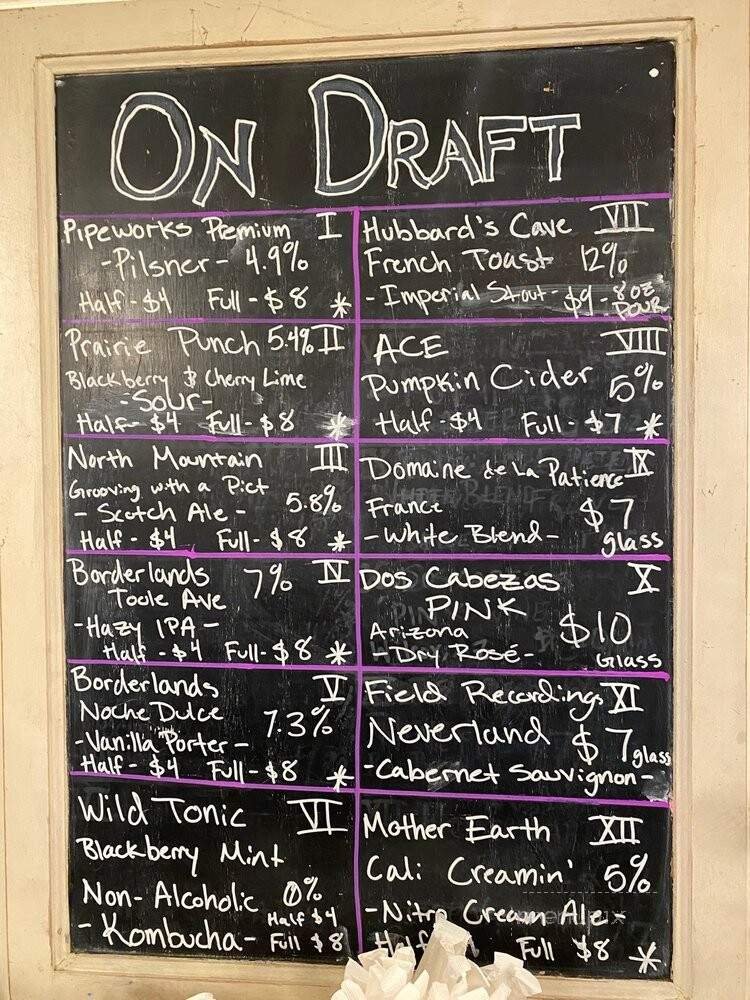 ON DRAFT
Pipeworks Premium I
- Pilsner - 4.9%
Half - $4 Full - $8 *
Prairie Punch 5.4% II
Blackberry & Cherry Lime
- Sour -
Half - $4 Full - $8 *
North Mountain III
Grooving with a Pict
- Scotch Ale - 5.8%
Half - $4 Full - $8 *
Borderlands 7% IV
Toole Ave
- Hazy IPA -
Half - $4 Full - $8 *
Borderlands V
Noche Dulce 7.3%
- Vanilla Porter -
Half - $4 Full - $8 *
Wild Tonic VI
Blackberry Mint
Non-Alcoholic 0%
Half $4
- Kombucha - Full $8
Hubbard's Cave VII
French Toast 12%
- Imperial Stout - $9 - 8oz
POUR
ACE VIII
Pumpkin Cider 5%
Half - $4 Full - $7 *
Domaine de La Patience IX
France $7
- White Blend - glass
Dos Cabezas X
PINK
Arizona $10
- Dry Rosé - Glass
Field Recordings XI
Neverland $7 glass
- Cabernet Sauvignon -
Mother Earth XII
Cali Creamin' 5%
- Nitro Cream Ale -
Half Full $8 *